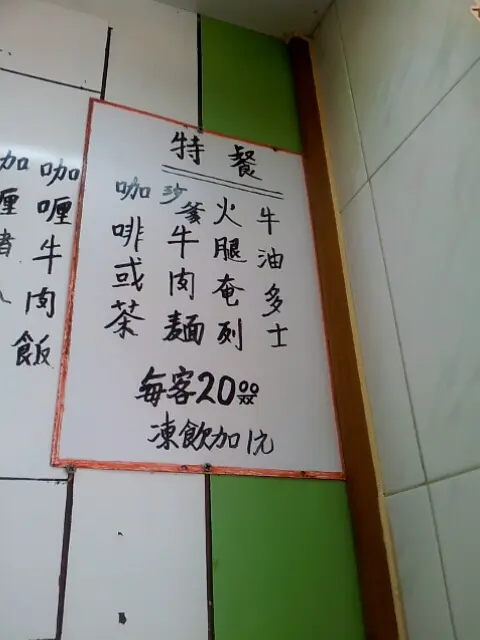 特餐
牛油多士
火腿奄列
沙爹牛肉麵
咖啡或茶
每客20.00
凍飲加1元
咖喱牛肉飯